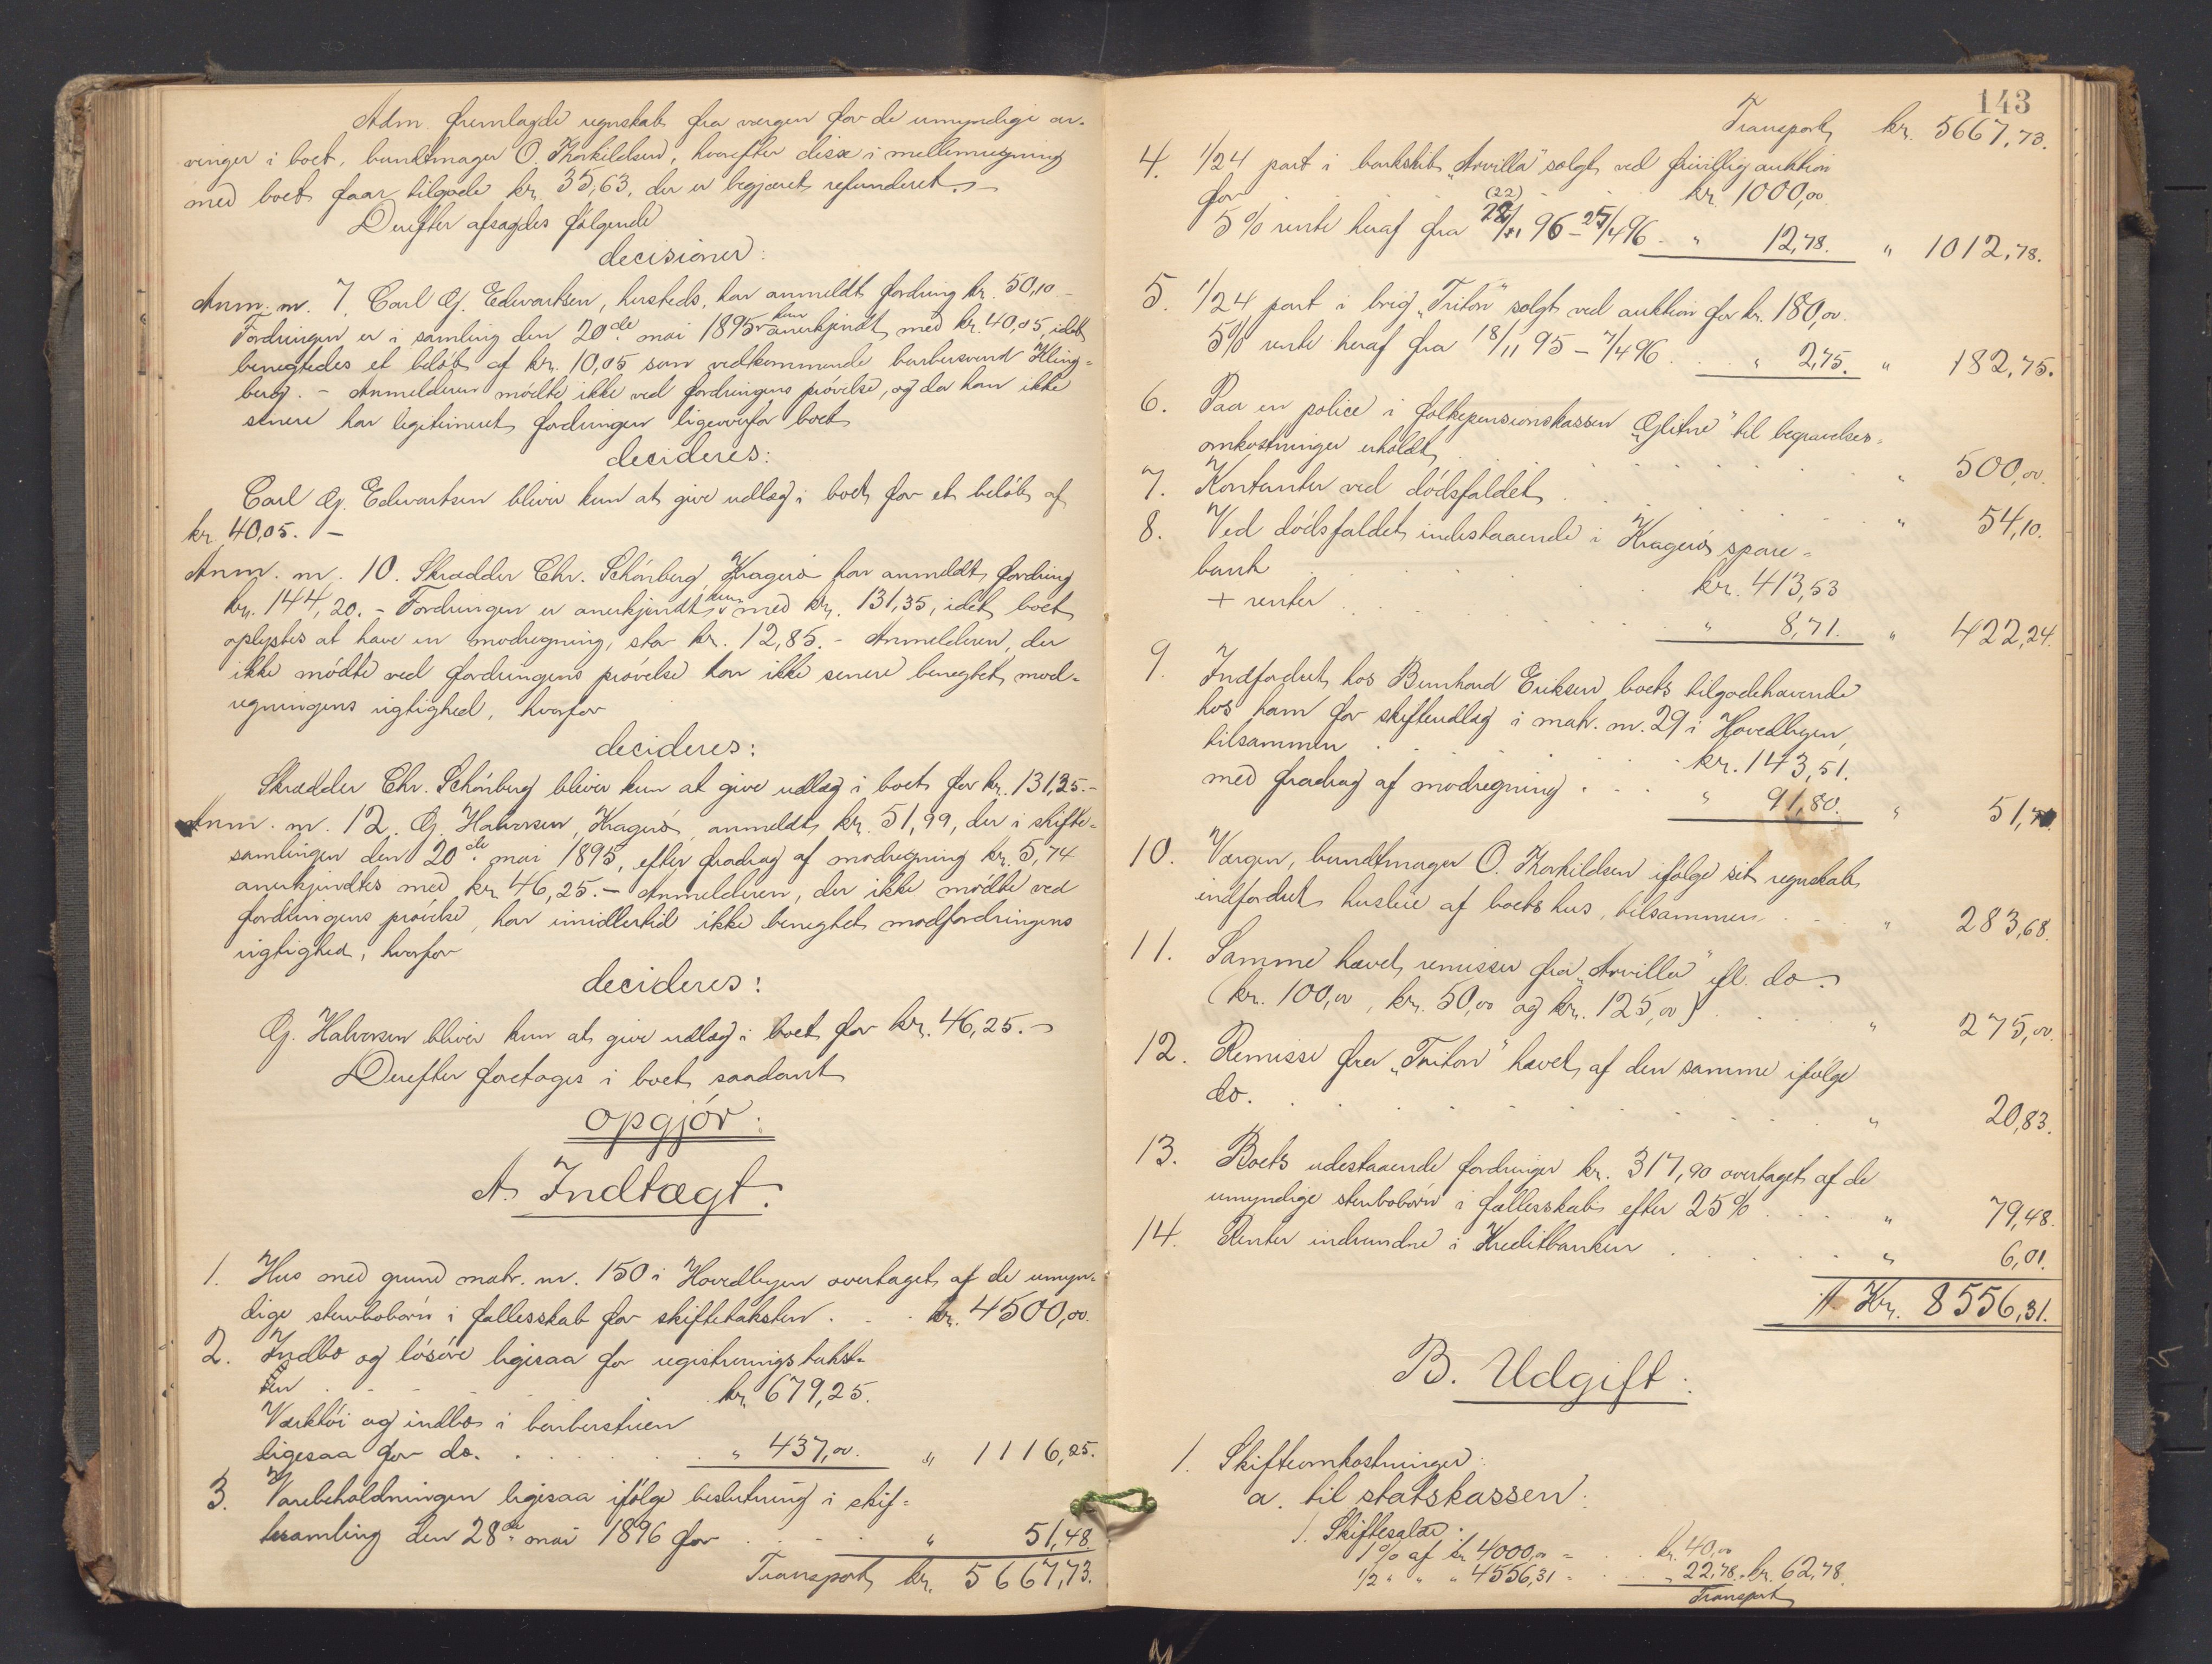 Adm. fremlagde regnskab fra værgen for de umyndige ar-
vinger i boet, bundtmager O. Thorkildsen, hvorefter disse i mellemregning
med boet faar tilgode kr. 35,63, der er begjæret refunderet. –
Derefter afsagdes følgende
decisioner:
Anm. nr. 7. Carl G. Edvartsen, hersteds, har anmeldt fordring kr. 50,10 –
Fordringen er i samling den 20de mai 1895 kun anerkjendt med kr. 40,05, idet
benegtedes et beløb af kr. 10,05 som vedkommende barbersvend Kling-
berg. – Anmelderen mødte ikke ved fordringens prøvelse, og da han ikke
senere har legitimeret fordringen ligeoverfor boet
decideres:
Carl G. Edvartsen bliver kun at give udlæg i boet for et beløb af
kr. 40,05. –
Anm. nr. 10. Skrædder Chr. Schönberg, Kragerø har anmeldt fordring
kr. 144,20. – Fordringen er anerkjendt kun med kr. 131,35, idet boet
oplystes at have en modregning, stor kr. 12,85. – Anmelderen, der
ikke mødte ved fordringens prøvelse har ikke senere benegtet mod-
regningens rigtighed, hvorfor
decideres:
Skrædder Chr. Schönberg bliver kun at give udlæg i boet for kr. 131,35. –
Anm. nr. 12. G. Halvorsen, Kragerø, anmeldt kr. 51,99, der i skifte-
samlingen den 20de mai 1895, efter fradrag af modregning kr. 5,74
anerkjendtes med kr. 46,25. – Anmelderen, der ikke mødte ved
fordringens prøvelse, har imidlertid ikke benegtet modfordringens
rigtighed, hvorfor
decideres:
G. Halvorsen bliver kun at give udlæg i boet for kr. 46,25. –
Derefter foretoges i boet saadant
opgjør:
A. Indtægt.
1. Hus med grund matr. nr. 150 i Hovedbyen overtaget af de umyn-
dige stervbobørn i fællesskab for skiftetaksten . . . kr. 4500,00.
2. Indbo og løsøre ligesaa for registreringstakst-
en . . . . kr. 679,25.
Værktøi og indbo i barberstuen
ligesaa for do. . . . " 437,00. " 1116,25.
3. Varebeholdningen ligesaa ifølge beslutning i skif-
tesamling den 28de mai 1896 for . . . " 51,48.
Transport kr. 5667,73.
143
Transport kr. 5667,73.
4. 1/24 part i barkskib "Arvilla" solgt ved frivillig auktion
for . . . kr. 1000,00.
(22)
5 % rente heraf fra 28/1 96 – 25/4 96 . " 12,78. " 1012,78.
5. 1/24 part i brig "Triton" solgt ved auktion for kr. 180,00.
5 % rente heraf fra 18/11 95 – 7/4 96 . . " 2,75. " 182,75.
6. Paa en police i folkepensionskassen "Glitne" til begravelses-
omkostninger erholdt . . . " 500,00.
7. Kontanter ved dødsfaldet . . . " 54,10.
8. Ved dødsfaldet indestaaende i Kragerø spare-
bank . . . kr. 413,53
+ renter . . . " 8,71. " 422,24.
9. Indfordret hos Bernhard Eriksen boets tilgodehavende
hos ham for skifteudlæg i matr. nr. 29 i Hovedbyen,
tilsammen . . . kr. 143,51.
med fradrag af modregning . . . " 91,80. " 51,71.
10. Værgen, bundtmager O. Thorkildsen ifølge sit regnskab
indfordret husleie af boets hus, tilsammen . . . " 283,68.
11. Samme hævet remisser fra "Arvilla" ifl. do.
(kr. 100,00, kr. 50,00 og kr. 125,00) . . . " 275,00.
12. Remisse fra "Triton" hævet af den samme ifølge
do. . . . " 20,83.
13. Boets udestaaende fordringer kr. 317,90 overtaget af de
umyndige stervbobørn i fællesskab efter 25 % . . . " 79,48.
14. Renter indvundne i Kreditbanken . . . " 6,01.
A Kr. 8556,31.
B. Udgift:
1. Skifteomkostninger:
a. til statskassen:
1. Skiftesalær:
1 % af kr. 4000,00 = . . kr. 40,00
1/2 " " " 4556,31 = . . " 22,78. kr. 62,78.
Transport